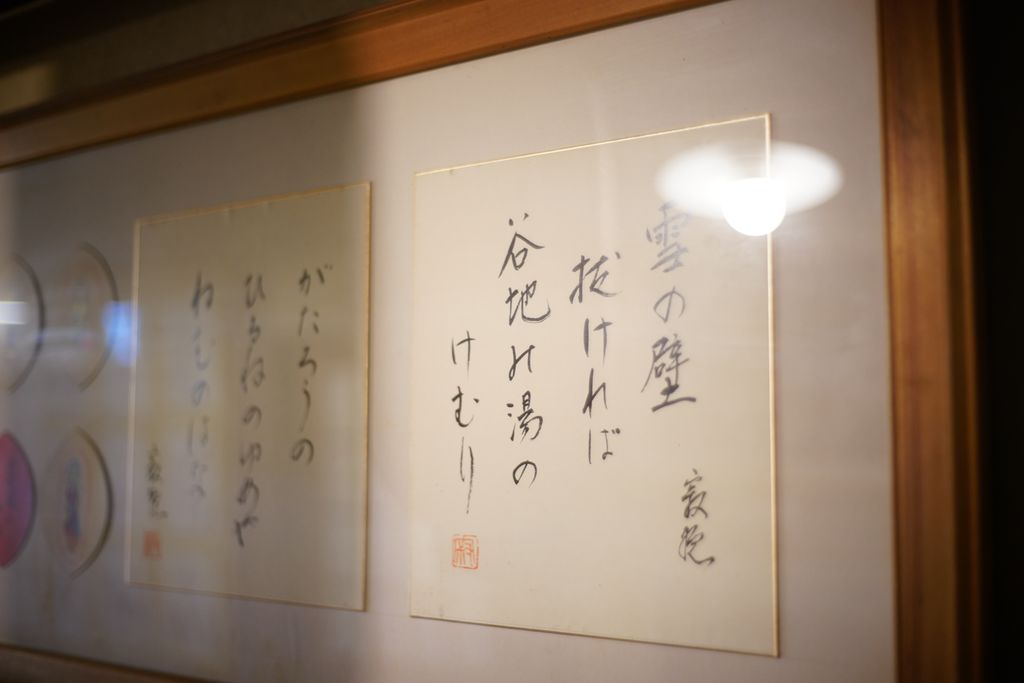 雪の壁
抜ければ
谷地の湯の
けむり
がたろうの
ひるねのゆめや
ねむのはな